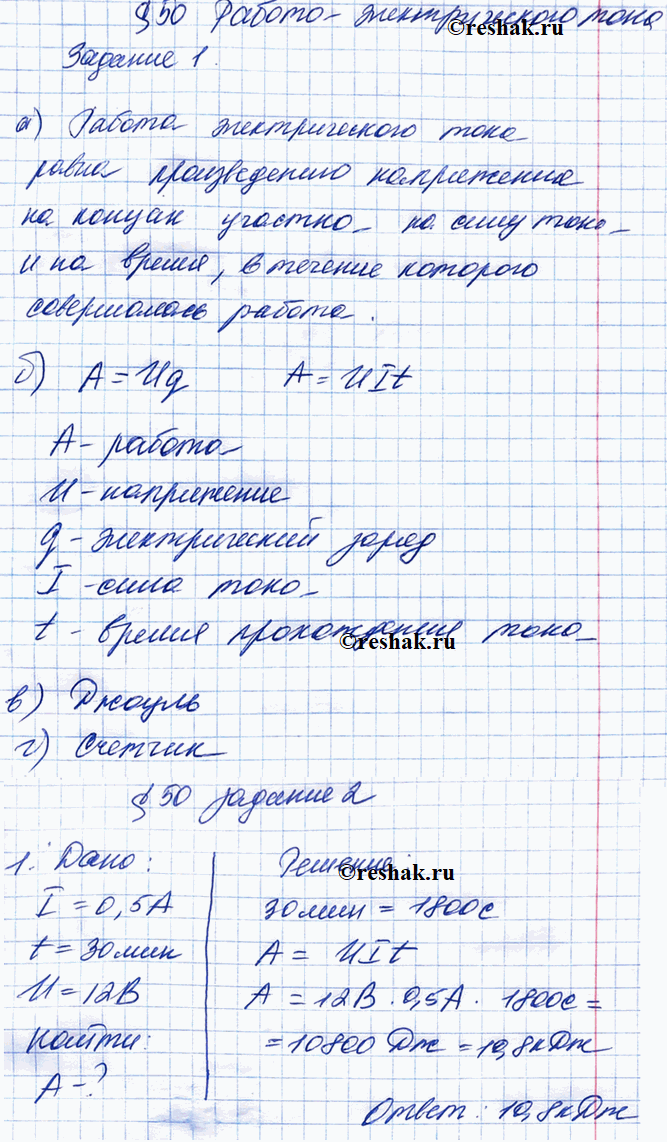 §50 Работа электрического тока
©reshak.ru
Задание 1.
а) Работа электрического тока
равна произведению напряжения
на концах участка на силу тока
и на время, в течение которого
совершалась работа.
б) A = Uq    A = UIt
A - работа
U - напряжение
q - электрический заряд
I - сила тока
t - время прохождения тока
©reshak.ru
в) Джоуль
г) Счетчик
§50 задание 2
1. Дано: Решение:
©reshak.ru
I = 0,5А 30мин = 1800с
t = 30мин A = UIt
U = 12В A = 12В · 0,5А · 1800с =
Найти: = 10800 Дж = 10,8кДж
A - ?
Ответ: 10,8кДж